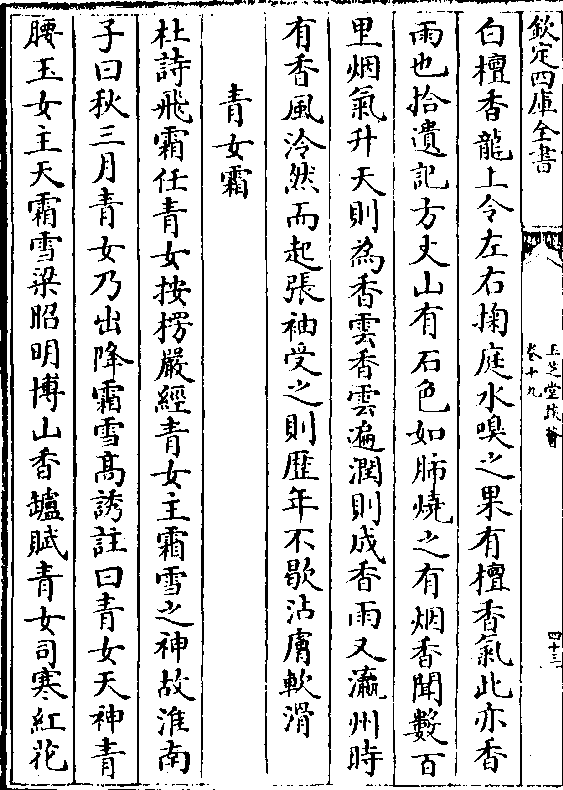 欽定四庫全書
玉芝堂談薈
卷十九
四十三
白檀香龍上令左右掬庭水嗅之果有檀香氣此亦香
雨也拾遺記方丈山有石色如肺燒之有烟香聞數百
里烟氣升天則為香雲香雲遍潤則成香雨又瀛州時
有香風泠然而起張袖受之則歴年不歇沾膚軟滑
青女霜
杜詩飛霜任青女按楞嚴經青女主霜雪之神故淮南
子曰秋三月青女乃出降霜雪髙誘註曰青女天神青
腰玉女主天霜雪梁昭明博山香罏賦青女司寒紅花